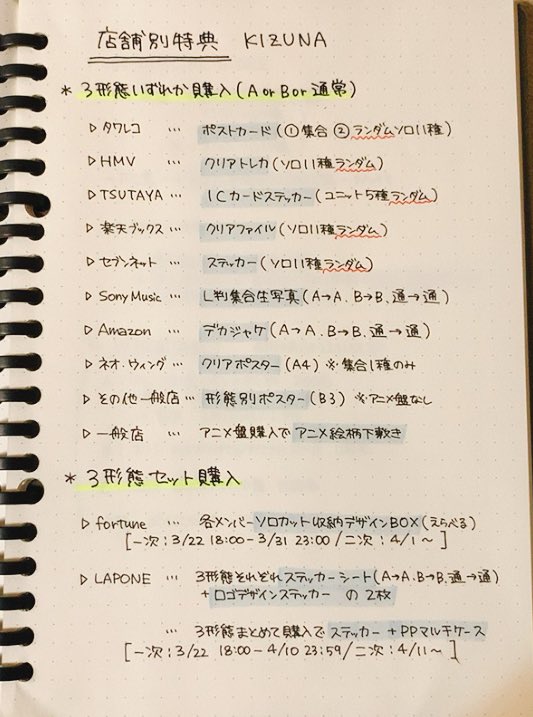 店舗別特典 KIZUNA
* 3形態いずれか購入(A or B or 通常)
▷ タワレコ … ポストカード(①集合 ②ランダムソロ11種)
▷ HMV … クリアトレカ(ソロ11種ランダム)
▷ TSUTAYA … ICカードステッカー(ユニット5種ランダム)
▷ 楽天ブックス … クリアファイル(ソロ11種ランダム)
▷ セブンネット … ステッカー(ソロ11種ランダム)
▷ Sony Music … L判集合生写真(A→A、B→B、通→通)
▷ Amazon … デカジャケ(A→A、B→B、通→通)
▷ ネオ・ウィング … クリアポスター(A4) ※集合1種のみ
▷ その他一般店 … 形態別ポスター(B3) ※アニメ盤なし
▷ 一般店 … アニメ盤購入でアニメ絵柄下敷き
* 3形態セット購入
▷ fortune … 各メンバーソロカット収納デザインBOX(えらべる)
[一次:3/22 18:00-3/31 23:00/二次:4/1~]
▷ LAPONE … 3形態それぞれステッカーシート(A→A、B→B、通→通)
+ロゴデザインステッカー の2枚
… 3形態まとめて購入でステッカー+PPマルチケース
[一次:3/22 18:00-4/10 23:59/二次:4/11~]